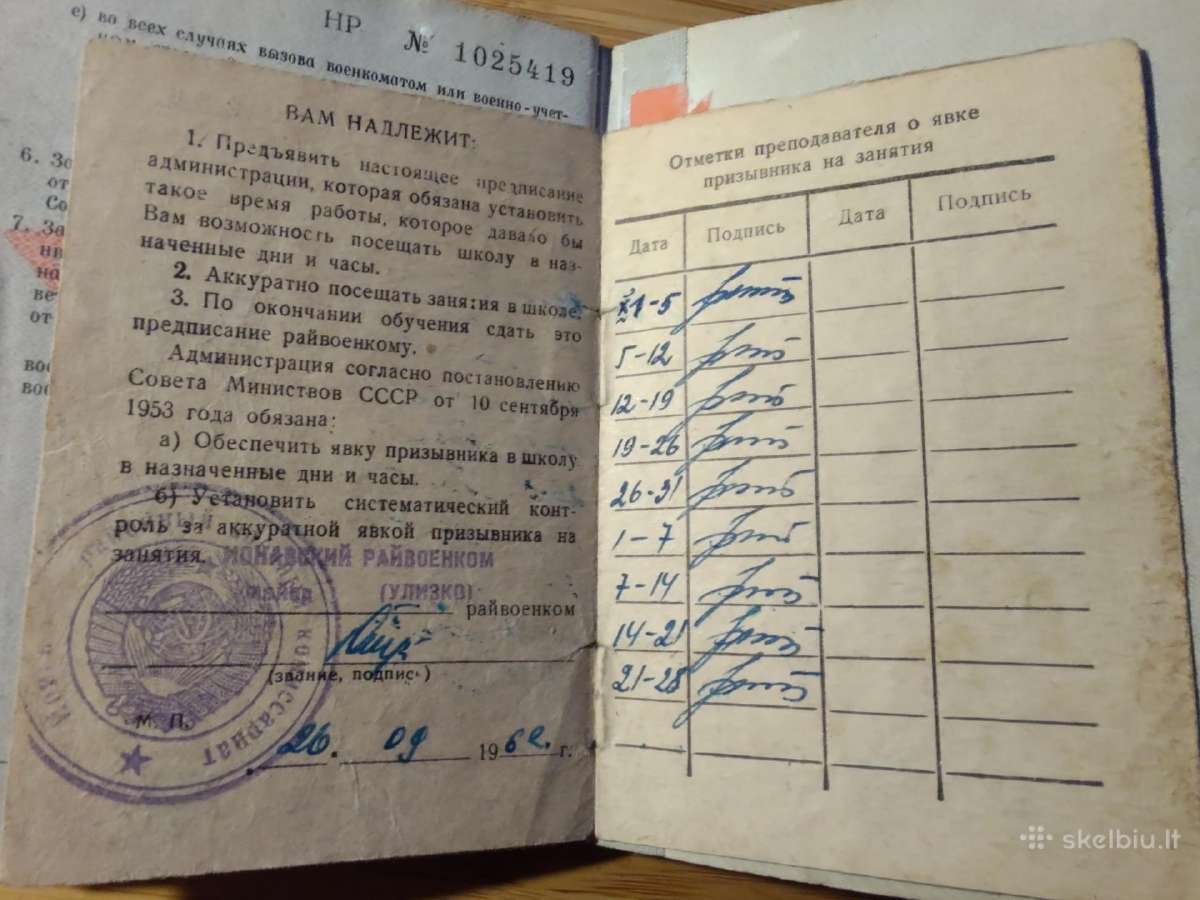 е) во всех случаях вызова военкоматом или военно-учет-
НР № 1025419
6. За
от
Со
7. За
нв
на
ве
от
вое
вое
ВАМ НАДЛЕЖИТ:
1. Предъявить настоящее предписание
администрации, которая обязана установить
такое время работы, которое давало бы
Вам возможность посещать школу в наз-
наченные дни и часы.
2. Аккуратно посещать занятия в школе.
3. По окончании обучения сдать это
предписание райвоенкому.
Администрация согласно постановлению
Совета Министвов СССР от 10 сентября
1953 года обязана:
а) Обеспечить явку призывника в школу
в назначенные дни и часы.
б) Установить систематический конт-
роль за аккуратной явкой призывника на
занятия.
ИОНАВСКИЙ РАЙВОЕНКОМ
майор (УЛИЗКО)
райвоенком
(звание, подпись)
М. П.
26. 09 1962 г.
Отметки преподавателя о явке
призывника на занятия
Дата Подпись Дата Подпись
XI-5
5-12
12-19
19-26
26-31
1-7
7-14
14-21
21-28
skelbiu.lt